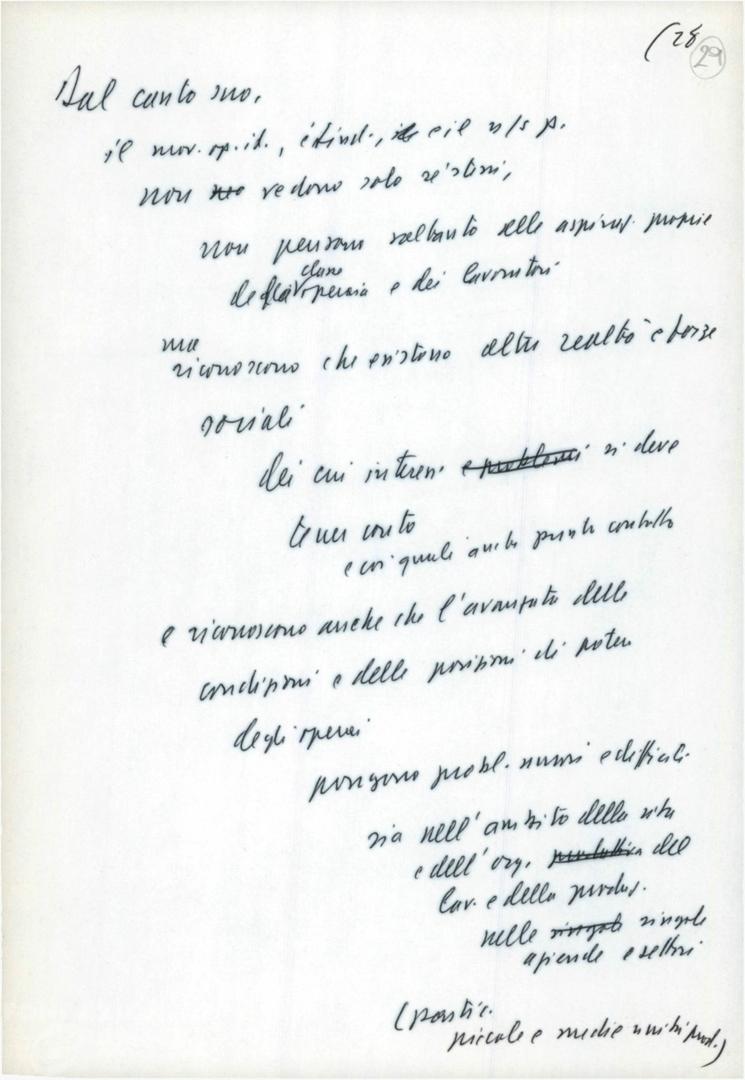 (28 29
Dal canto suo,
il mov. op. it., è sind., e il n/s p.
non vedono solo sé stessi,
non pensano soltanto alle aspiraz. proprie
classe
della operaia e dei lavoratori
ma
riconoscono che esistono altre realtà e forze
sociali
dei cui interessi e problemi si deve
tener conto
e coi quali anche
e riconoscono anche che l'avanzata delle
condizioni e delle posizioni di potere
degli operai
pongono probl. nuovi e difficili
sia nell'ambito della vita
e dell'org. produttiva del
lav. e della produz.
nelle singole singole
aziende e settori
(partic.
piccole e medie unità prod.)